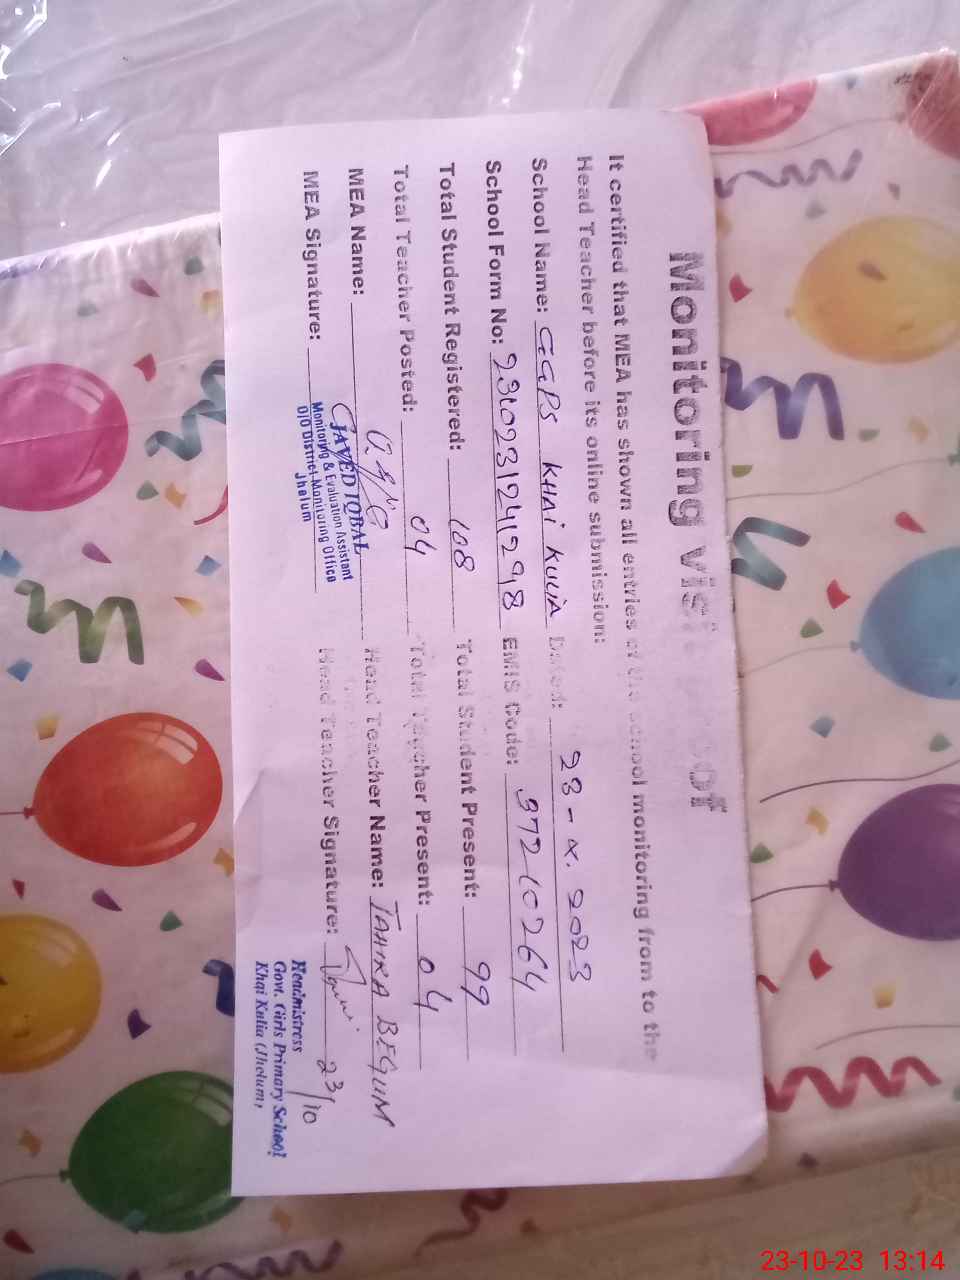 Monitoring visit proof
It certified that MEA has shown all entries of the school monitoring from to the
Head Teacher before its online submission:
School Name: GGPS KHAI KULIA Dated: 23-X.2023
School Form No: 231023124129 8 EMIS Code: 37210264
Total Student Registered: 108 Total Student Present: 99
Total Teacher Posted: 04 Total Teacher Present: 04
MEA Name: Head Teacher Name: TAHIRA BEGUM
MEA Signature: Head Teacher Signature: 23/10
JAVED IQBAL
Monitoring & Evaluation Assistant
O/O District Monitoring Office
Jhelum
Headmistress
Govt. Girls Primary School
Khai Kulia (Jhelum)
23-10-23 13:14